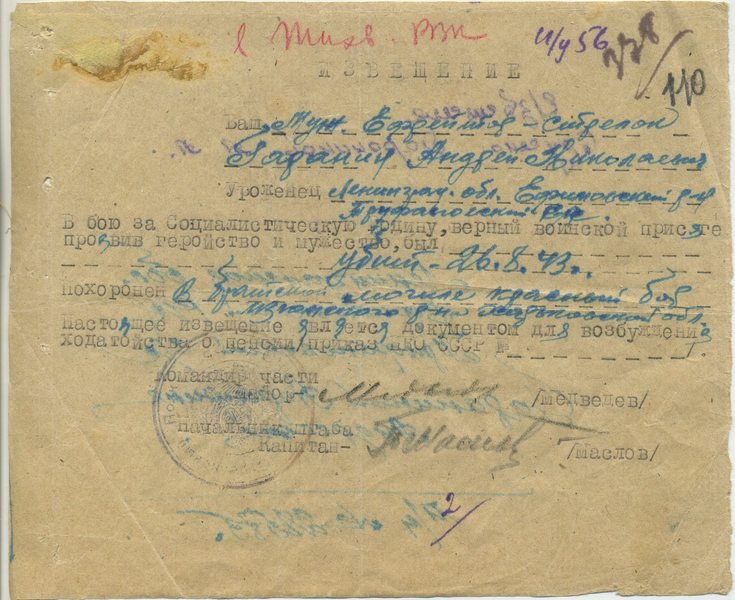 в Тихв. РВК
и/у 56
110
ИЗВЕЩЕНИЕ
Ваш Муж. Ефрейтор-Стрелок
Гаранин Андрей Николаевич
Уроженец Ленинград. обл. Ефимовский р-н
В бою за Социалистическую Родину, верный воинской присяге
проявив геройство и мужество, был
убит 26.8.43 г.
похоронен в братской могиле красный
Изюмского р-на Харьковской обл.
Настоящее извещение является документом для возбуждени я
ходатойства о пенсии/приказ НКО СССР № /.
командир части
майор- /медведев/
начальник штаба
капитан- /маслов/
2/